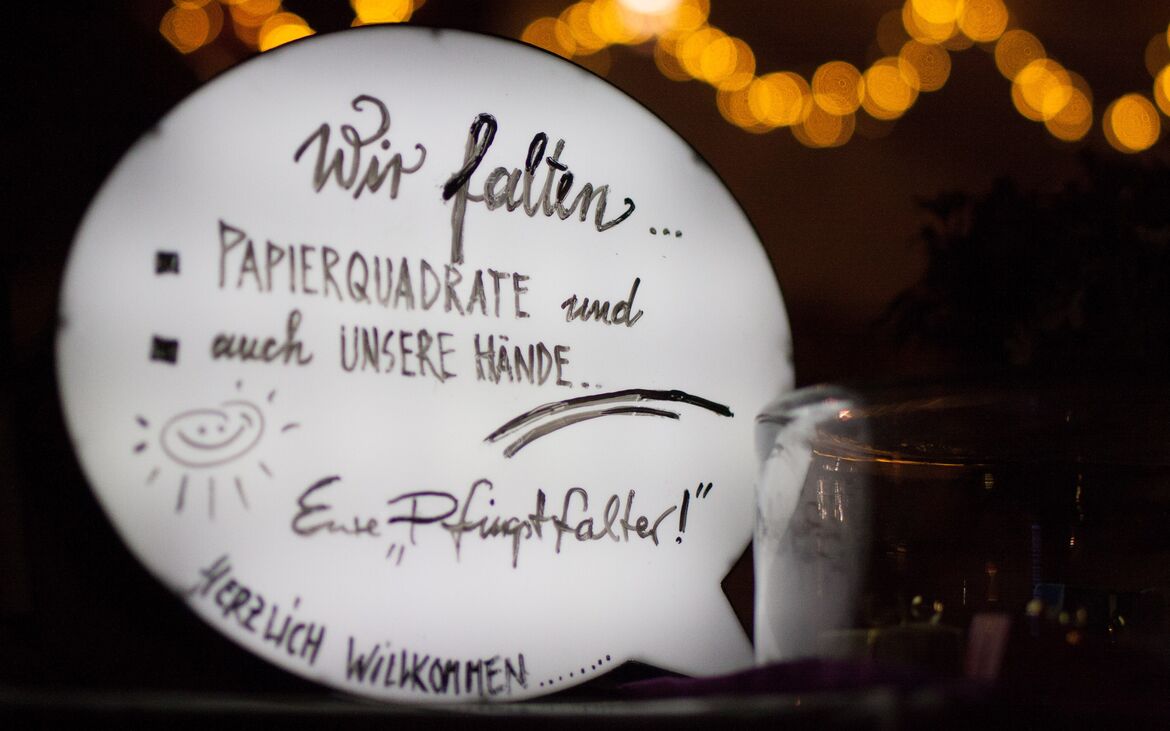 Wir falten ...
▪ PAPIERQUADRATE und
▪ auch UNSERE HÄNDE...
Eure „Pfingstfalter!"
HERZLICH WILLKOMMEN.......